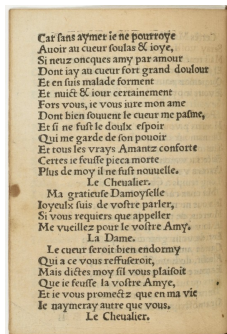 Car sans aymer ie ne pourroye
Auoir au cueur soulas & ioye,
Si neuz oncques amy par amour
Dont iay au cueur fort grand doulour
Et en suis malade forment
Et nuict & iour certainement
Fors vous, ie vous iure mon ame
Dont bien souuent le cueur me pasme,
Et si ne fust le doulx espoir
Qui me garde de son pouoir
Et tous les vrays Amantz conforte
Certes ie feusse pieca morte
Plus de moy il ne fust nouuelle.
Le Cheualier.
Ma gratieuse Damoyselle
Ioyeulx suis de vostre parler,
Si vous requiers que appeller
Me vueillez pour le vostre Amy.
La Dame.
Le cueur seroit bien endormy
Qui a ce vous reffuseroit,
Mais dictes moy sil vous plaisoit
Que ie feusse la vostre Amye,
Et ie vous promectz que en ma vie
Ie naymeray autre que vous.
Le Cheualier.